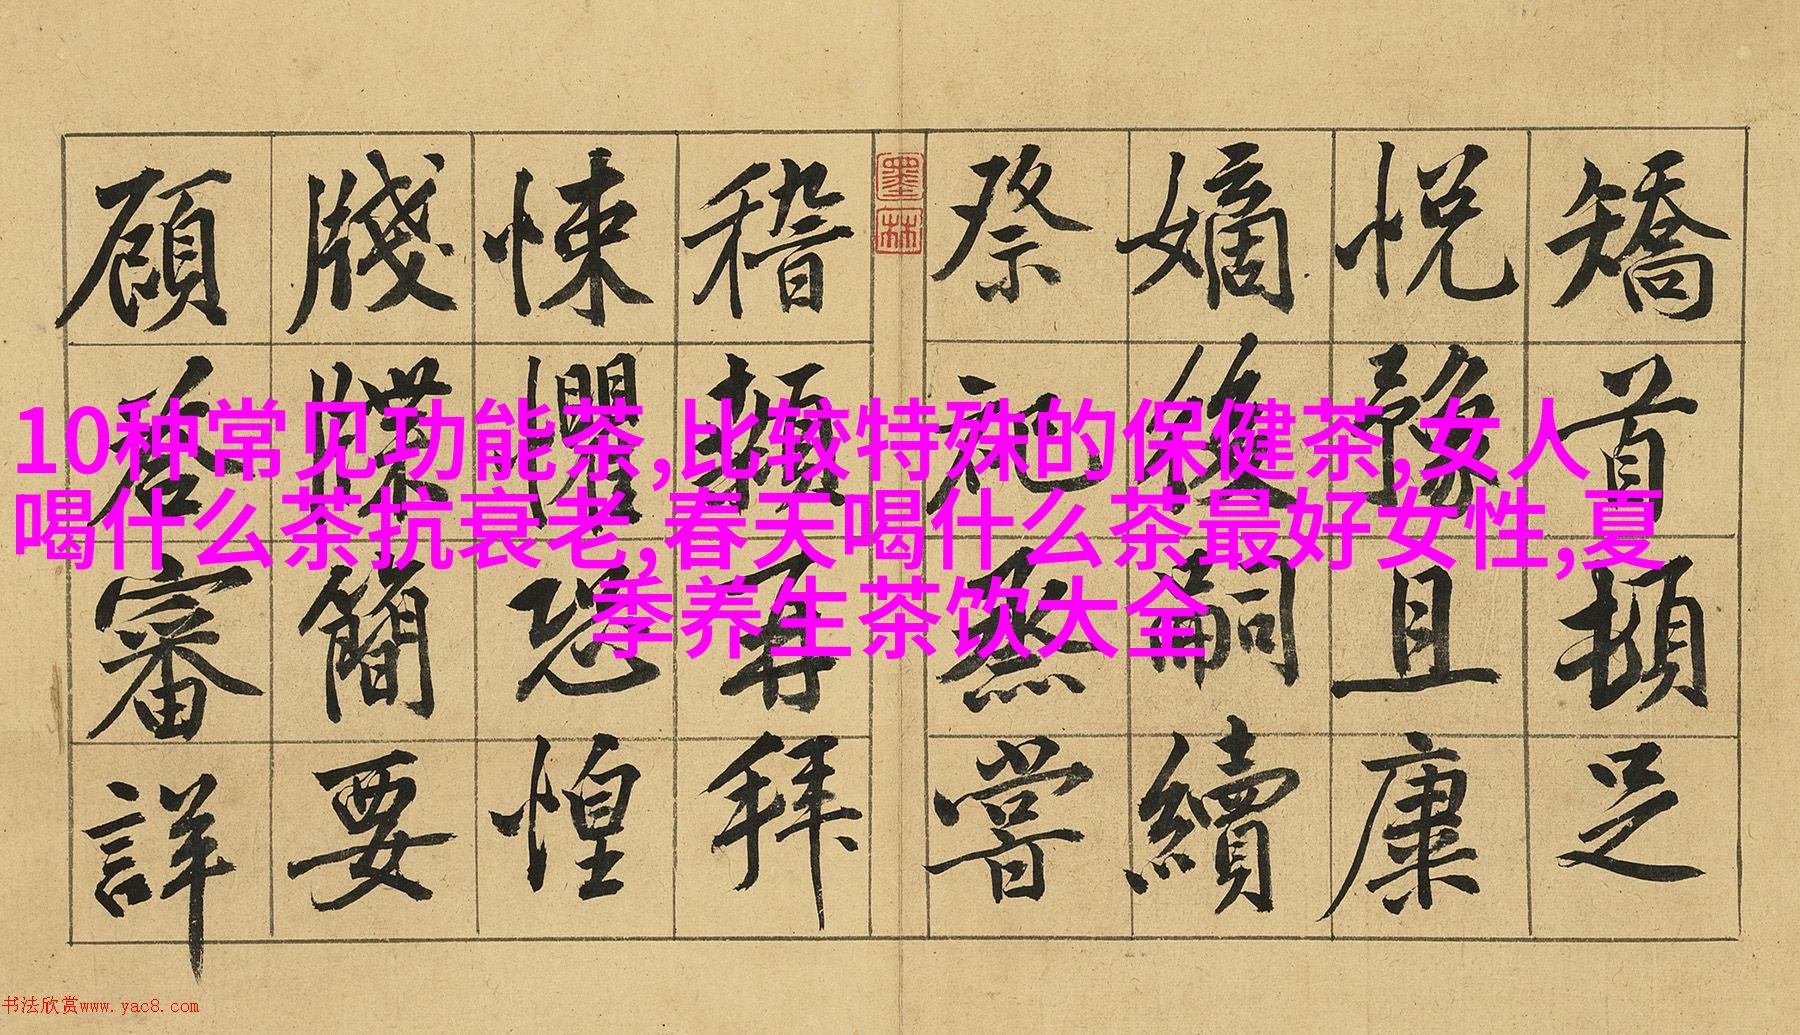 10种常见功能茶,比较特殊的保健茶,女人
喝什么茶抗衰老,春天喝什么茶最好女性,夏
季养生茶饮大全
矯首頓足
悅豫且康
嫡後嗣續
祭祀蒸嘗
墨林
稽顙再拜
悚懼恐惶
牋牒簡要
顧答審詳
书法欣赏www.yac8.com